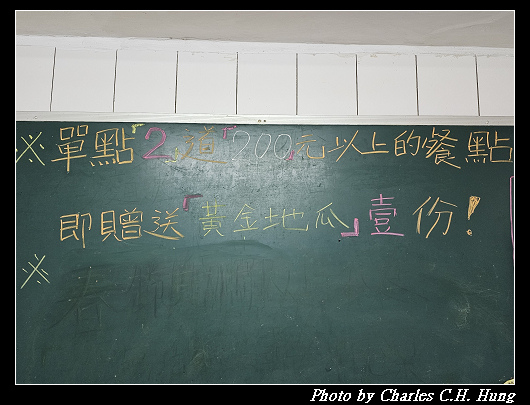 ※單點「2」道「200」元以上的餐點
即贈送「黃金地瓜」壹份!
※
Photo by Charles C.H. Hung